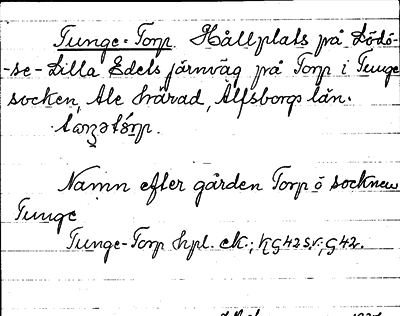 Tunge-Torp. Hållplats på Lödö-
-se-Lilla Edets järnväg på Torp i Tunge
socken, Ale härad, Älfsborgs län.
Namn efter gården Torp i socknen
Tunge
Tunge-Torp hpl. ek.; KG42SV; G42.